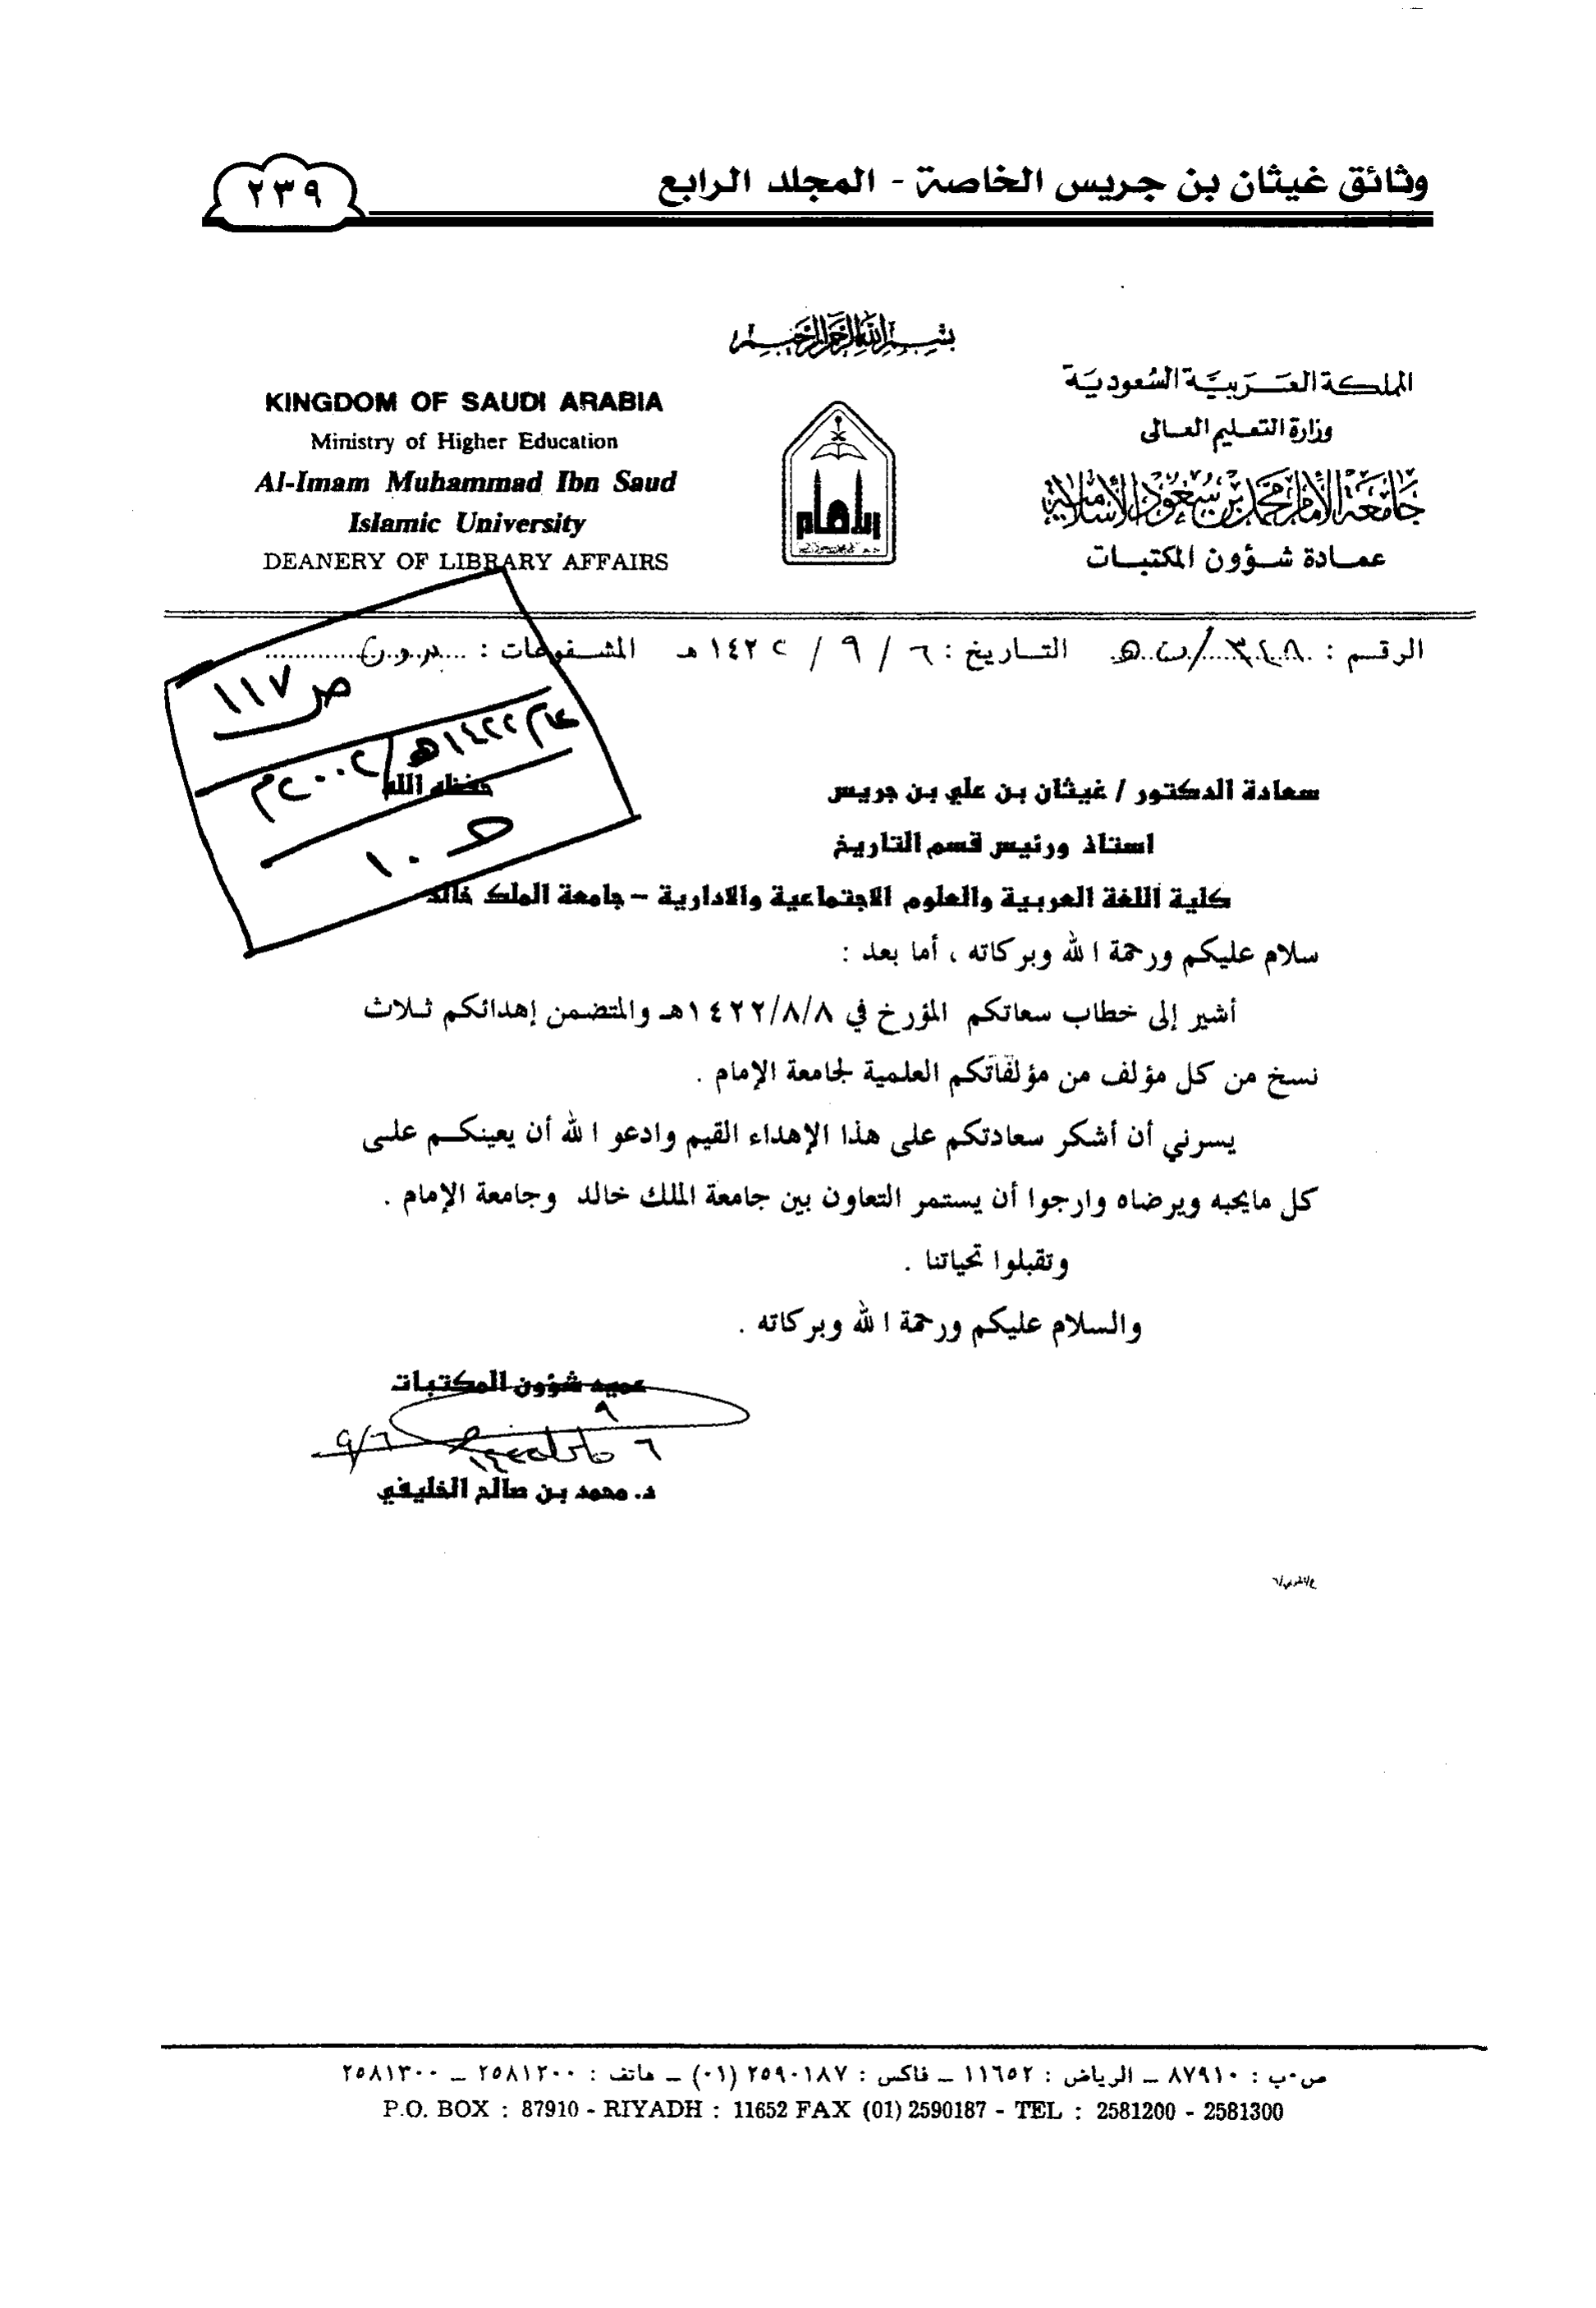 وثائق غيثان بن جريس الخاصة - المجلد الرابع
٢٣٩
بسم الله الرحمن الرحيم
المملكة العربية السعودية
وزارة التعليم العالي
جامعة الإمام محمد بن سعود الإسلامية
عمادة شؤون المكتبات
KINGDOM OF SAUDI ARABIA
Ministry of Higher Education
Al-Imam Muhammad Ibn Saud
Islamic University
DEANERY OF LIBRARY AFFAIRS
الرقم : التاريخ : ٦ / ٩ / ١٤٢٢ هـ المشفوعات : بدون
ص ١١٧
١٤٢٢هـ/٢٠٠٢م
سعادة الدكتور / غيثان بن علي بن جريس حفظه الله
استاذ ورئيس قسم التاريخ
كلية اللغة العربية والعلوم الاجتماعية والادارية – جامعة الملك خالد
سلام عليكم ورحمة الله وبركاته ، أما بعد :
أشير إلى خطاب سعاتكم المؤرخ في ١٤٢٢/٨/٨هـ والمتضمن إهدائكم ثلاث
نسخ من كل مؤلف من مؤلفاتكم العلمية لجامعة الإمام .
يسرني أن أشكر سعادتكم على هذا الإهداء القيم وادعو الله أن يعينكم على
كل مايحبه ويرضاه وارجوا أن يستمر التعاون بين جامعة الملك خالد وجامعة الإمام .
وتقبلوا تحياتنا .
والسلام عليكم ورحمة الله وبركاته .
عميد شؤون المكتبات
٩/٦
د. محمد بن صالح الخليفي
ص٠ب : ٨٧٩١٠ – الرياض : ١١٦٥٢ – فاكس : ٢٥٩٠١٨٧ (٠١) – هاتف : ٢٥٨١٢٠٠ – ٢٥٨١٣٠٠
P.O. BOX : 87910 - RIYADH : 11652 FAX (01) 2590187 - TEL : 2581200 - 2581300